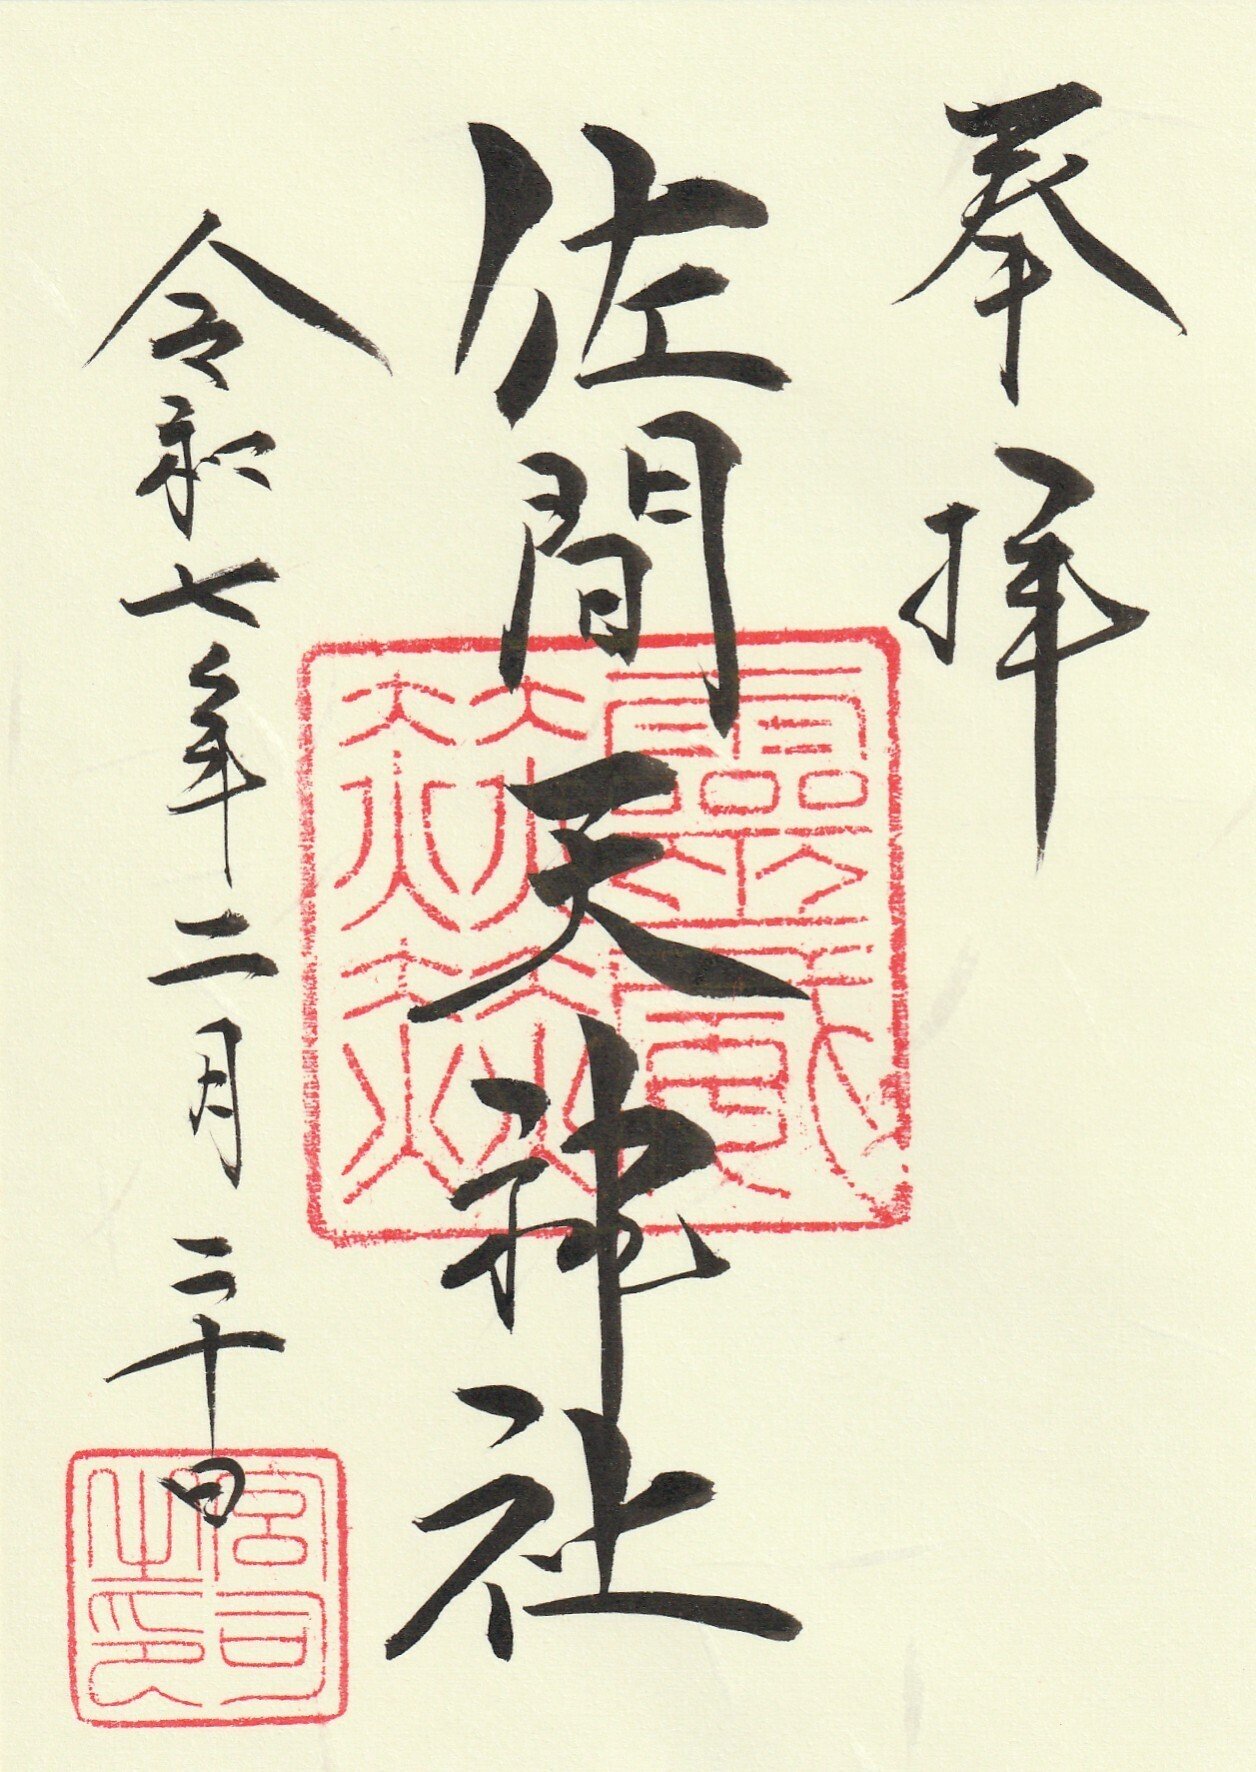 奉拝
佐間天神社
令和七年二月二十日
宮司
之印